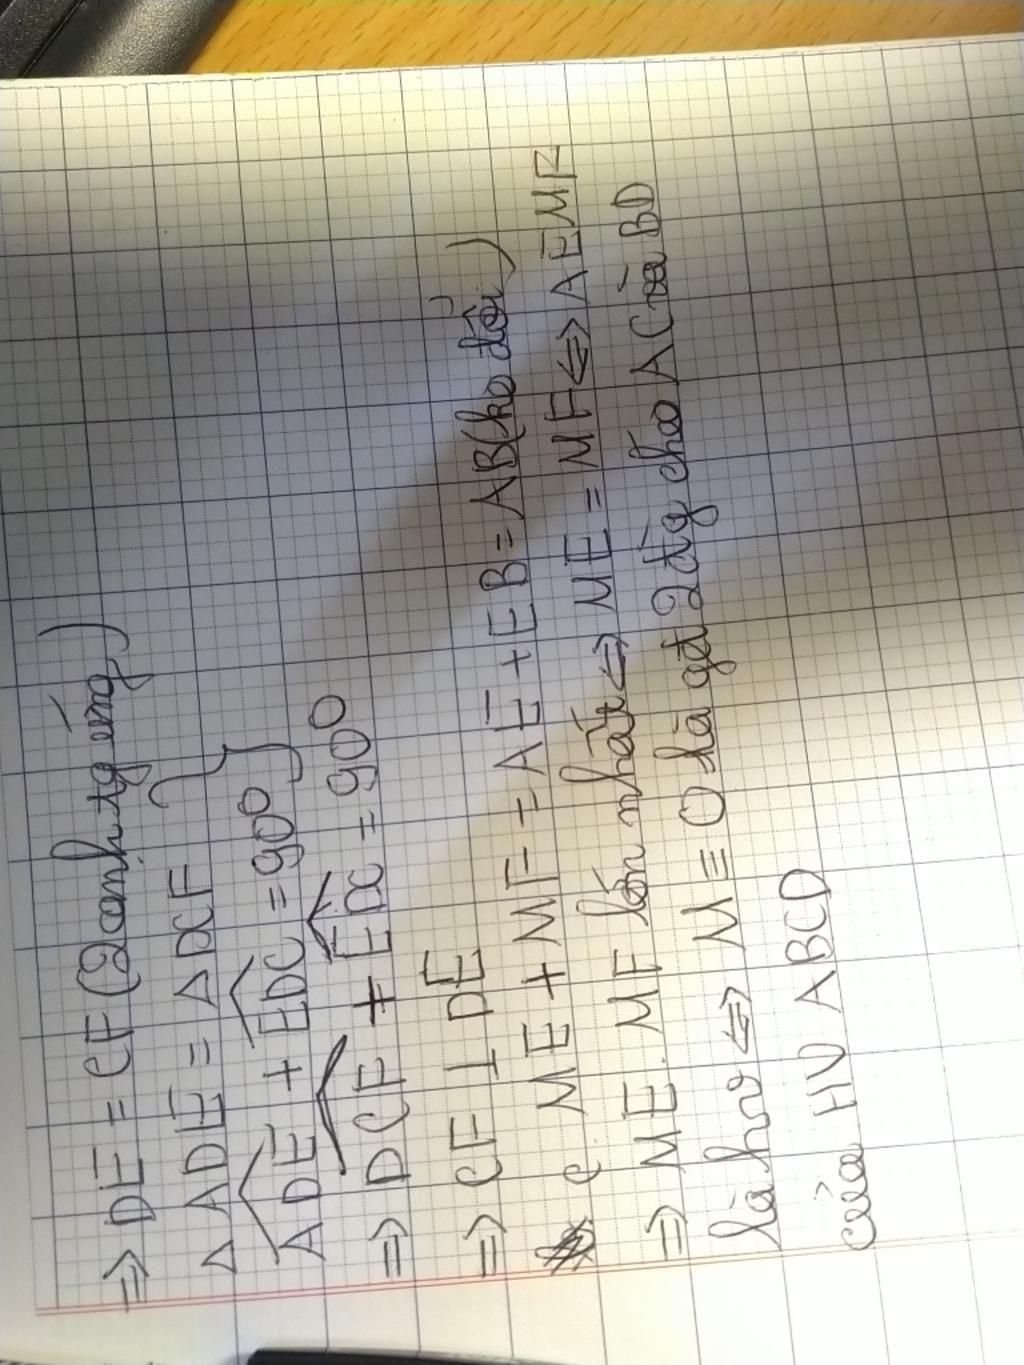 ⇒ DE = CF (2 cạnh tg ứng)
Δ ADE = Δ DCF
ADE + EDC = 90⁰ }
⇒ DCF + EDC = 90⁰
⇒ CF ⊥ DE
c ME + MF = AE + EB = AB (ko đổi)
⇒ ME.MF lớn nhất ⇔ ME = MF ⇔ AEMF
là hv ⇔ M ≡ O là gđ 2 đg chéo AC và BD
của HV ABCD